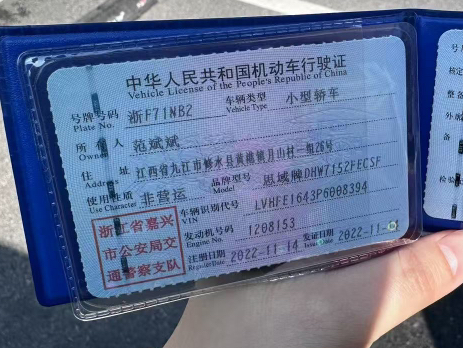 中华人民共和国机动车行驶证
Vehicle License of the People's Republic of China
号牌号码 浙F71NB2 车辆类型 小型轿车
Plate No. Vehicle Type
所有人 范斌斌
Owner
住址 江西省九江市修水县黄桥镇月山村一组26号
Address
使用性质 非营运 品牌型号 思域牌DHW7152FECSF
Use Character Model
浙江省嘉兴
市公安局交
通警察支队
车辆识别代号 LVHFE1643P6008394
VIN
发动机号码 1208153
Engine No.
注册日期 2022-11-14 发证日期 2022-11-
Register Date Issue Date
号
核定
整备
外廓
备
检验